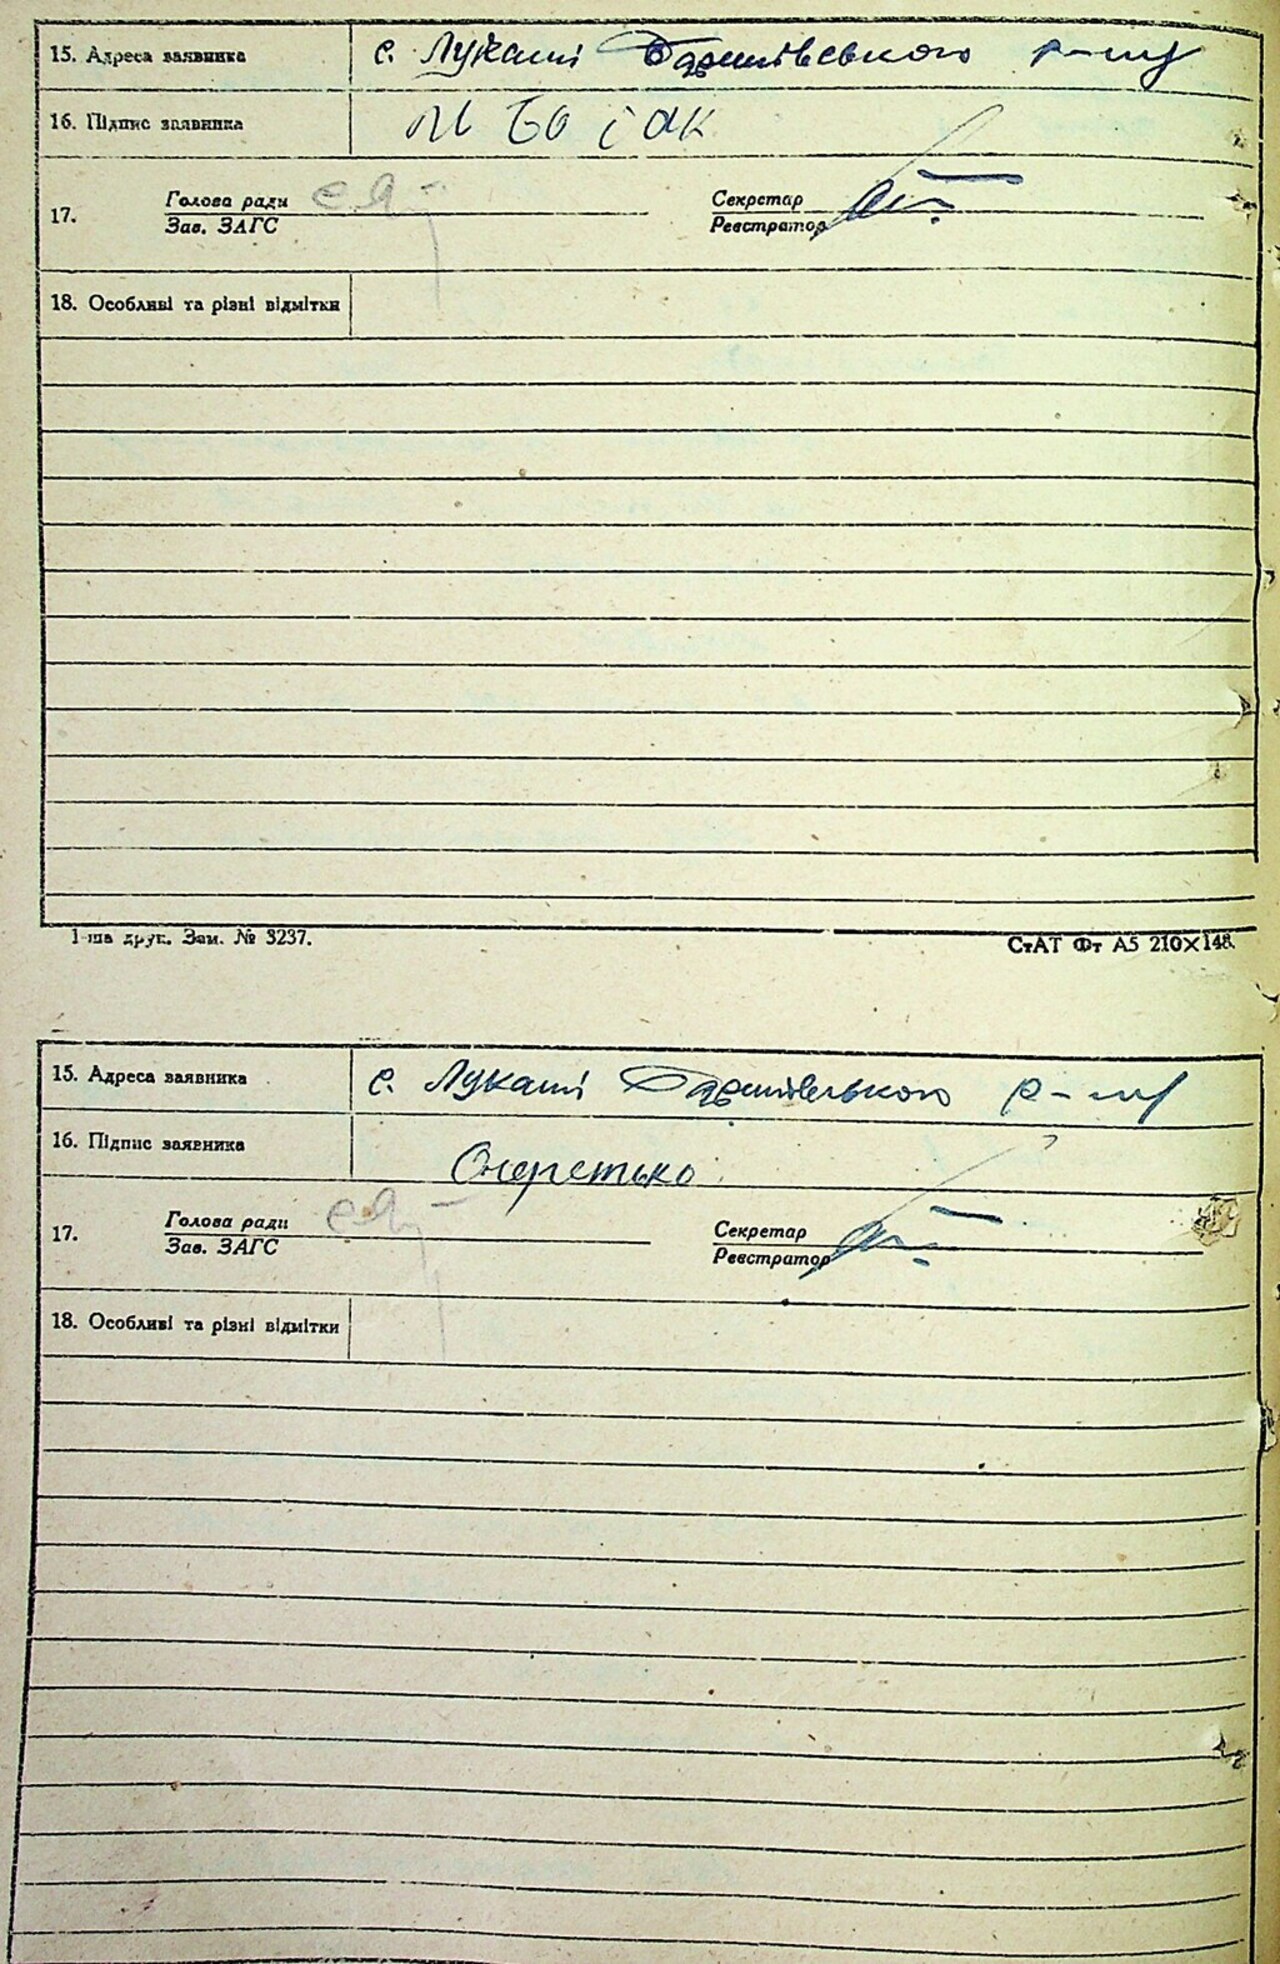 15. Адреса заявника с. Лукаші Баришівського р-ну
16. Підпис заявника
17. Голова ради Секретар
Зав. ЗАГС Реєстратор
18. Особливі та різні відмітки
1-ша друк. Зам. № 3237. СтАТ Фт А5 210×148.
15. Адреса заявника с. Лукаші Баришівського р-ну
16. Підпис заявника Очеретько
17. Голова ради Секретар
Зав. ЗАГС Реєстратор
18. Особливі та різні відмітки